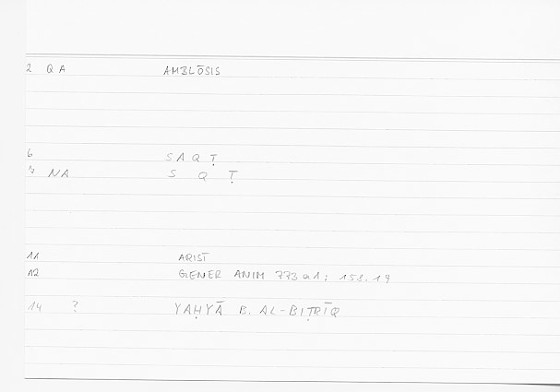 2 QA AMBLŌSIS
6 SAQṬ
7 NA S Q Ṭ
11 ARIST
12 GENER ANIM 773a1; 158.19
14 ? YAḤYĀ B. AL-BIṬRĪQ